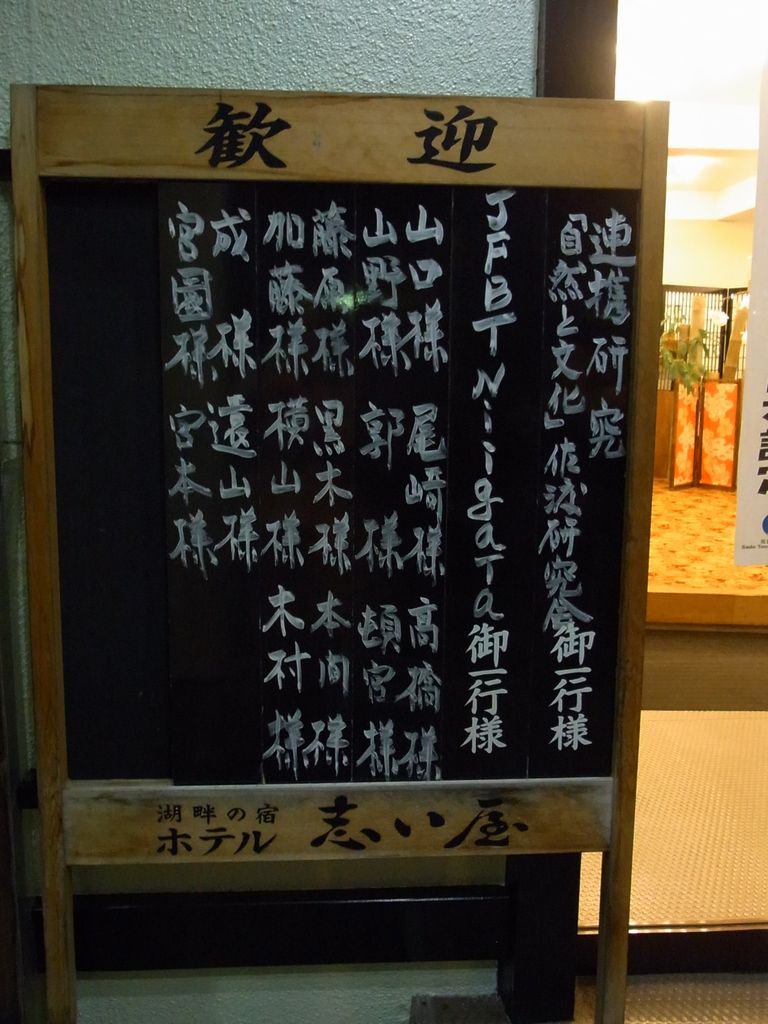 歓迎
連携研究
「自然と文化」佐渡研究会御一行様
JFBT Niigata御一行様
山口様 尾崎様 高橋様
山野様 郭様 頓宮様
藤原様 黒木様 本間様
加藤様 横山様 木村様
成様 遠山様
宮園様 宮本様
湖畔の宿
ホテル 志い屋